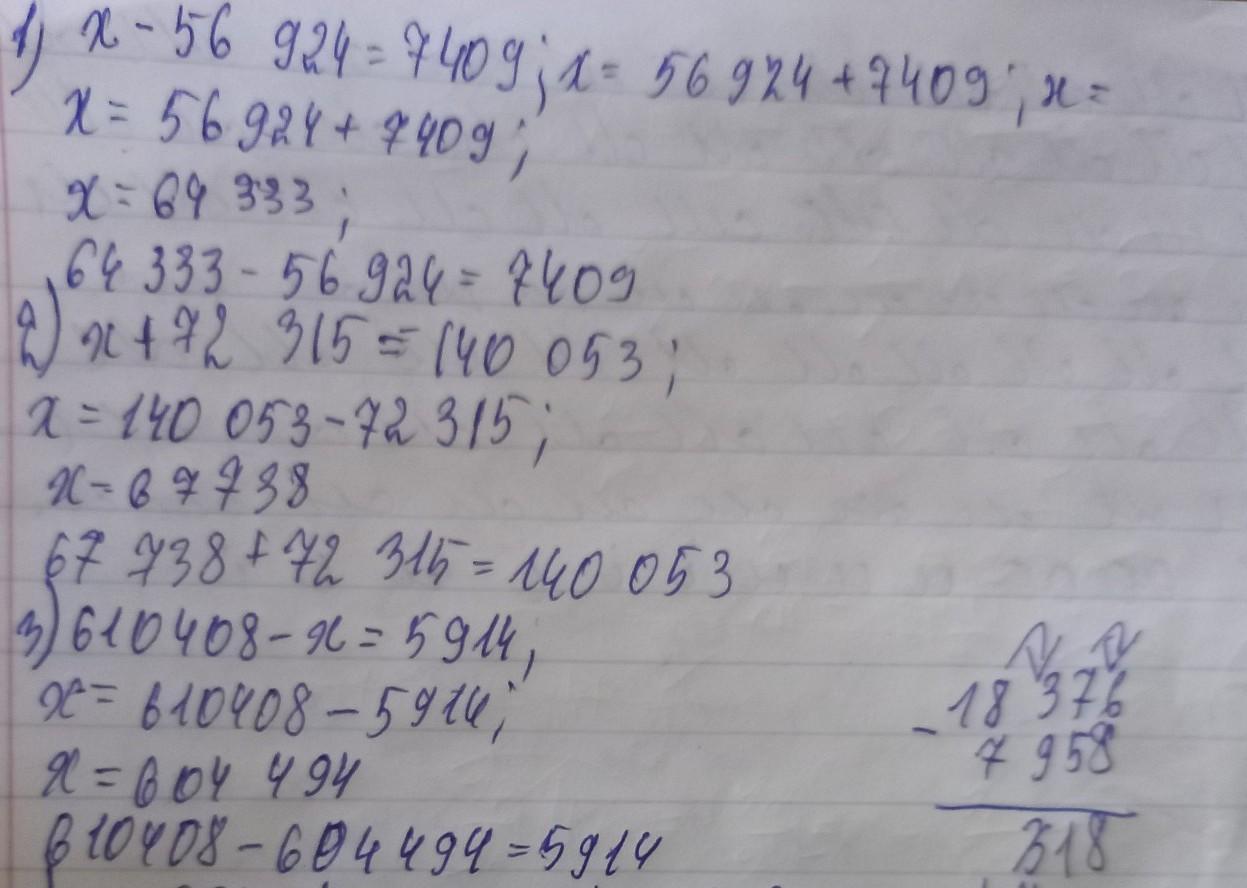 1) x - 56 924 = 7409; x = 56 924 + 7409; x =
x = 56 924 + 7409;
x = 64 333;
64 333 - 56 924 = 7409
2) x + 72 315 = 140 053;
x = 140 053 - 72 315;
x = 67 738
67 738 + 72 315 = 140 053
3) 610408 - x = 5914;
x = 610408 - 5914;
x = 604 494
610408 - 604 494 = 5914
18 376
- 7 958
318